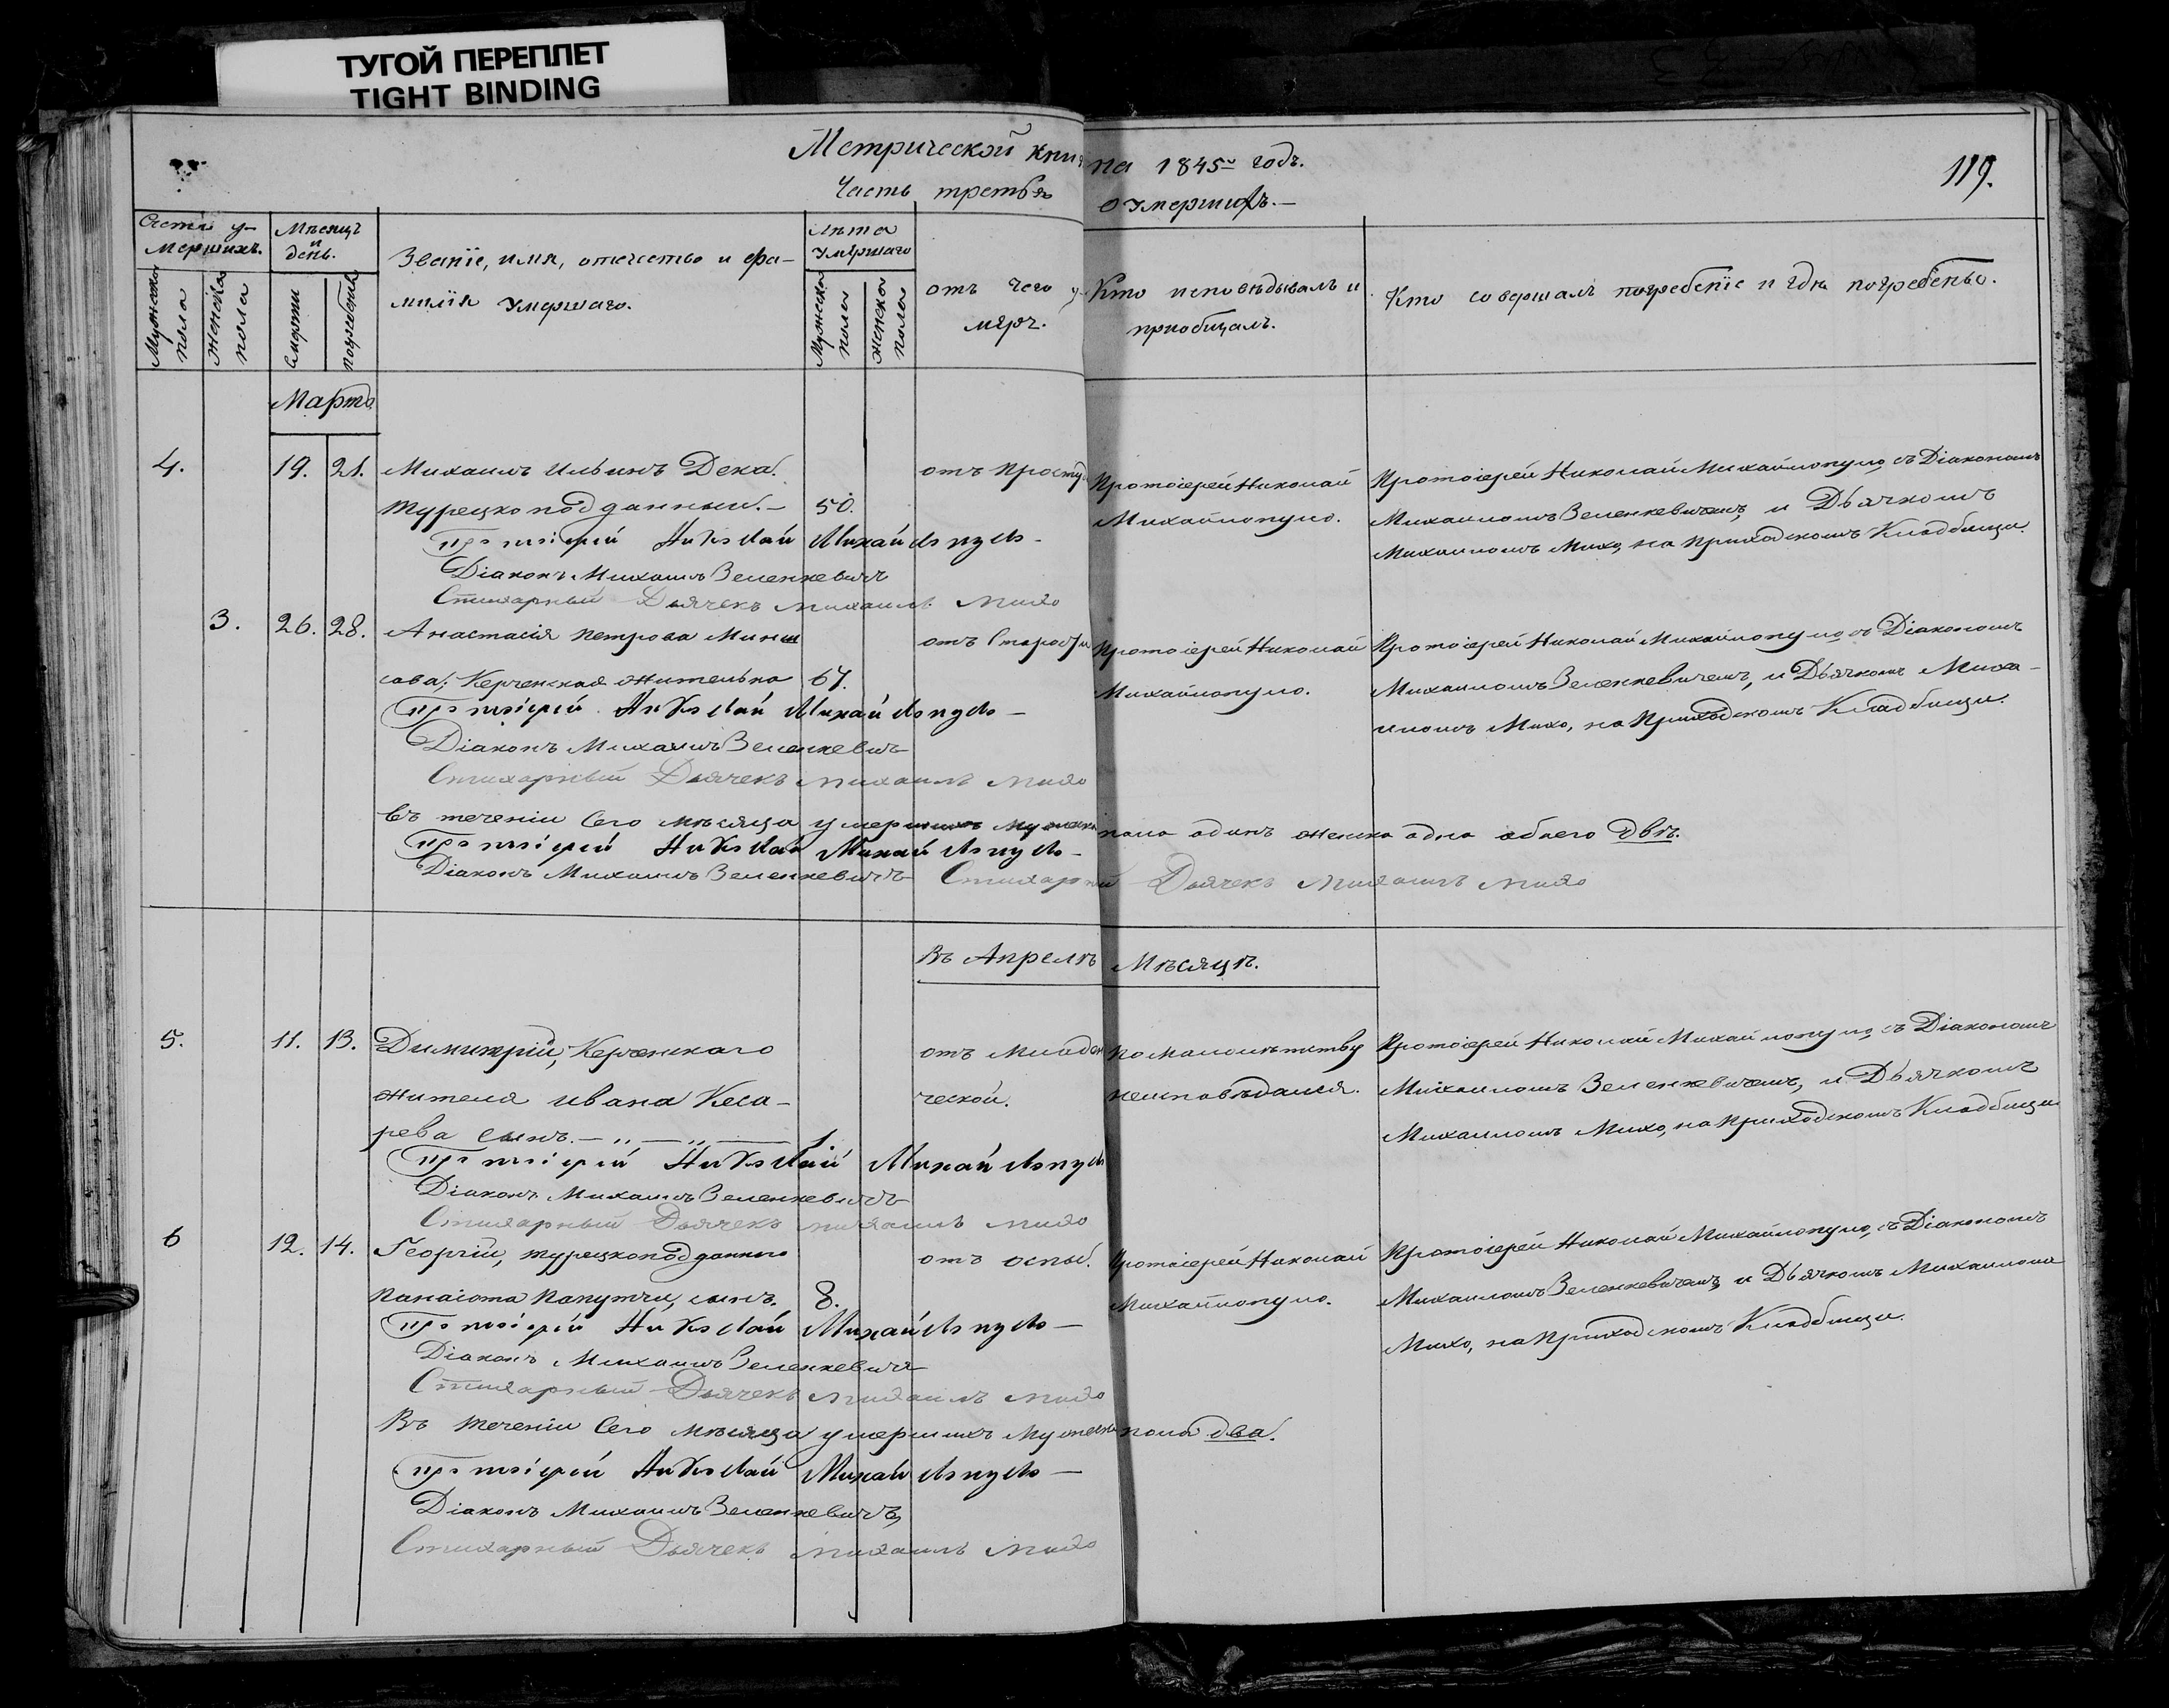 ТУГОЙ ПЕРЕПЛЕТ
TIGHT BINDING
Метрической книги на 1845й годъ.
119.
Часть третья о умершихъ.—
Счетъ у-
мершихъ.
Мѣсяцъ
и
день.
Званіе, имя, отечество и фа-
милія умершаго.
Лѣта
умершаго
отъ чего у-
меръ.
Кто исповѣдывалъ и
пріобщалъ.
Кто совершалъ погребеніе и гдѣ погребены.
Мужеска
пола
Женска
пола
Смерти
погребенія
Мужеска
пола
женска
пола
Марта
4. 19. 21. Михаилъ Ильинъ Дека. отъ простуды Протоіерей Николай Протоіерей Николай Михайлопуло, съ Діакономъ
Турецкоподданный.— 50. Михайлопуло. Михаиломъ Зеленкевичемъ, и Дьячкомъ
Протоіерей Николай Михайлопуло— Михаиломъ Михо, на приходскомъ Кладбище.
Діаконъ Михаилъ Зеленкевичъ
Стихарный Дьячекъ Михаилъ Михо
3. 26. 28. Анастасія Петрова отъ Старости Протоіерей Николай Протоіерей Николай Михайлопуло съ Діакономъ
Керченская жителька 67. Михайлопуло. Михаиломъ Зеленкевичемъ, и Дьячкомъ Миха-
Протоіерей Николай Михайлопуло— иломъ Михо, на Приходскомъ Кладбище.
Діаконъ Михаилъ Зеленкевичъ
Стихарный Дьячекъ Михаилъ Михо
въ теченіи сего мѣсяца умершихъ мужеска пола одинъ женска одна обоего двѣ.
Протоіерей Николай Михайлопуло—
Діаконъ Михаилъ Зеленкевичъ Стихарный Дьячекъ Михаилъ Михо
Въ Апрелѣ Мѣсяцѣ.
5. 11. 13. Димитрій, Керченскаго отъ младен по малолѣтству Протоіерей Николай Михайлопуло, съ Діакономъ
жителя Ивана Кеса- ческой. неисповѣдался. Михаиломъ Зеленкевичемъ, и Дьячкомъ
рева сынъ.—„—„— 1. Михаиломъ Михо, на приходскомъ Кладбище
Протоіерей Николай Михайлопуло
Діаконъ Михаилъ Зеленкевичъ
Стихарный Дьячекъ Михаилъ Михо
6 12. 14. Георгій, турецкоподданнаго отъ оспы. Протоіерей Николай Протоіерей Николай Михайлопуло, съ Діакономъ
Панаіота Папутчи, сынъ. 8. Михайлопуло. Михаиломъ Зеленкевичемъ, и Дьячкомъ Михаиломъ
Протоіерей Николай Михайлопуло— Михо, на Приходскомъ Кладбище.
Діаконъ Михаилъ Зеленкевичъ
Стихарный Дьячекъ Михаилъ Михо
Въ теченіи сего мѣсяца умершихъ мужеска пола два.
Протоіерей Николай Михайлопуло—
Діаконъ Михаилъ Зеленкевичъ,
Стихарный Дьячекъ Михаилъ Михо